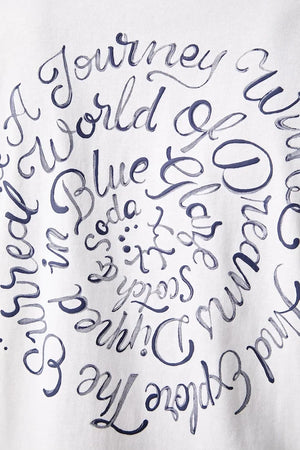 A Journey Within
And Explore The
Surreal World Of
Dreams Dipped
in Blue Glaze
with
Scotch &
Soda